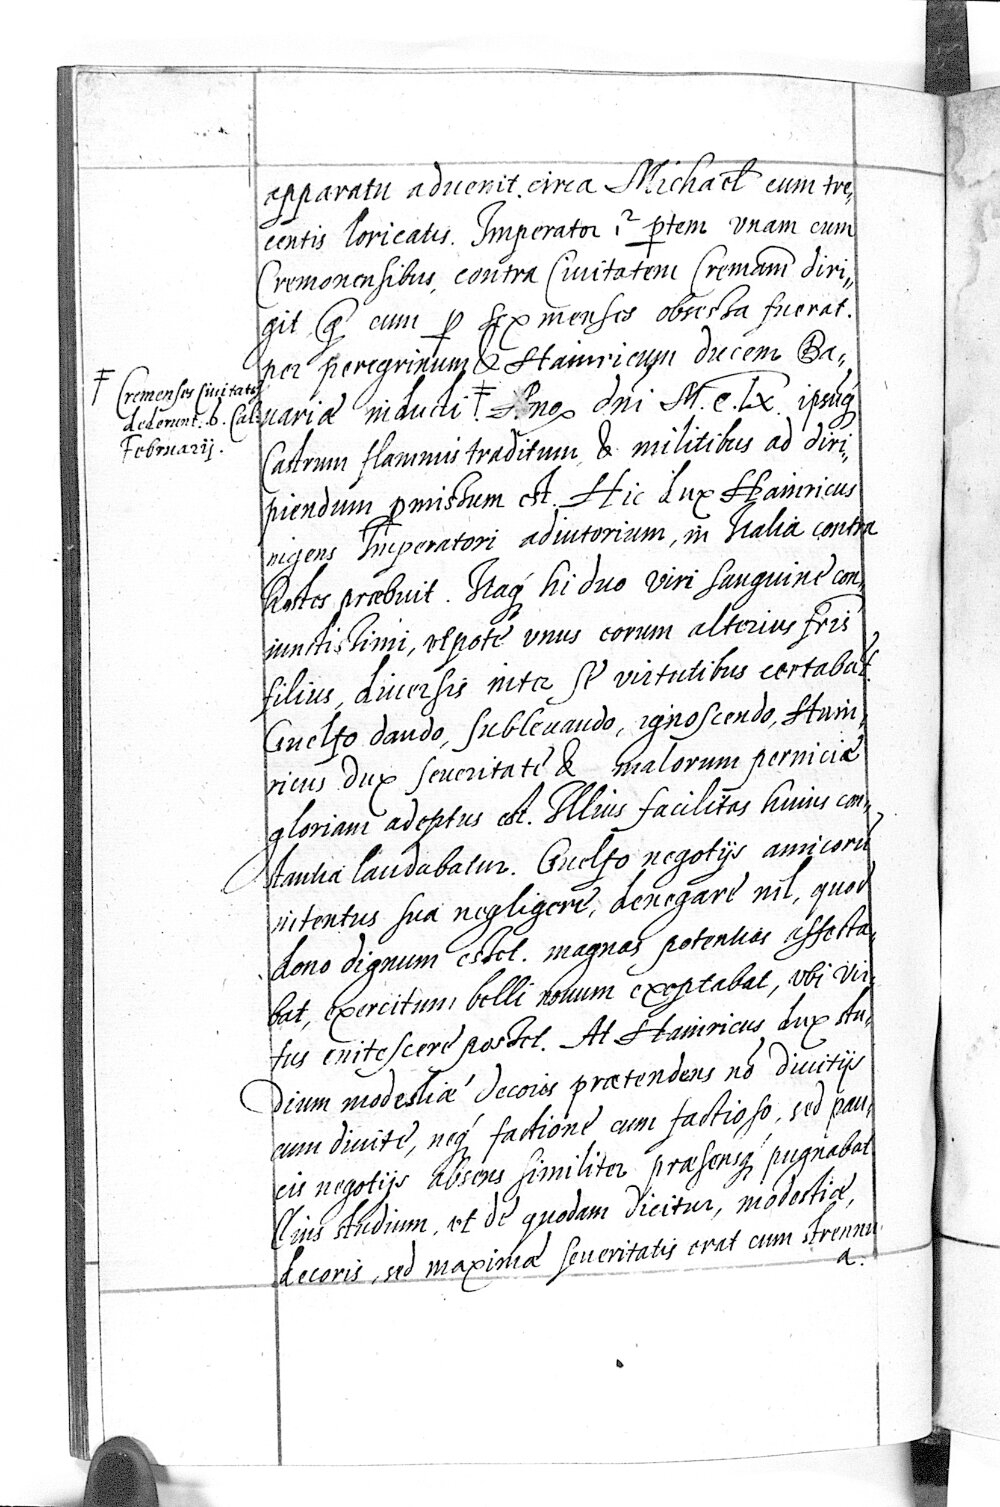 apparatu aduenit. circa Michael cum tre„
centis loricatis. Imperator ptem vnam cum
Cremonensibus, contra Ciuitatem Cremam diri„
git q̃ cum p sex menses obsessa fuerat.
per peregrinum & Hainricum ducem Ba„
uariæ inducti ‡. Ano dni M.C.LX. ipsuq́
Castrum flammis traditum, & militibus ad diri„
piendum pmissum est. Hic dux Hainricus
ingens Imperatori adiutorium, in Italia contra
hostes præbuit. Itaq́ hi duo viri sanguine con„
iunctissimi, vtpote vnus eorum alterius fris
filius, diuersis inter se virtutibus certabãt.
Guelfo dando, subleuando, ignoscendo, Hain„
ricus dux seueritate & malorum perniciæ
gloriam adeptus est. Illius facilitas huius con„
stantia laudabatur. Guelfo negotijs amicorũ
intentus sua negligere, denegare nil, quod
dono dignum esset. magnas potentias affecta„
bat, exercitum, belli nouum exoptabat, vbi vir„
tus enitescere posset. At Hainricus dux stu„
dium modestiæ decoris prætendens nõ diuitijs
cum diuite, neq́ factione cum factioso, sed pau„
cis negotijs absens similiter præsensq́ pugnabat
Eius studium, vt de quodam dicitur, modestiæ,
decoris, sed maximæ seueritatis erat cum strennu
a.
‡ Cremenses Ciuitatẽ
dederunt. 6. Cal.
Februarij.